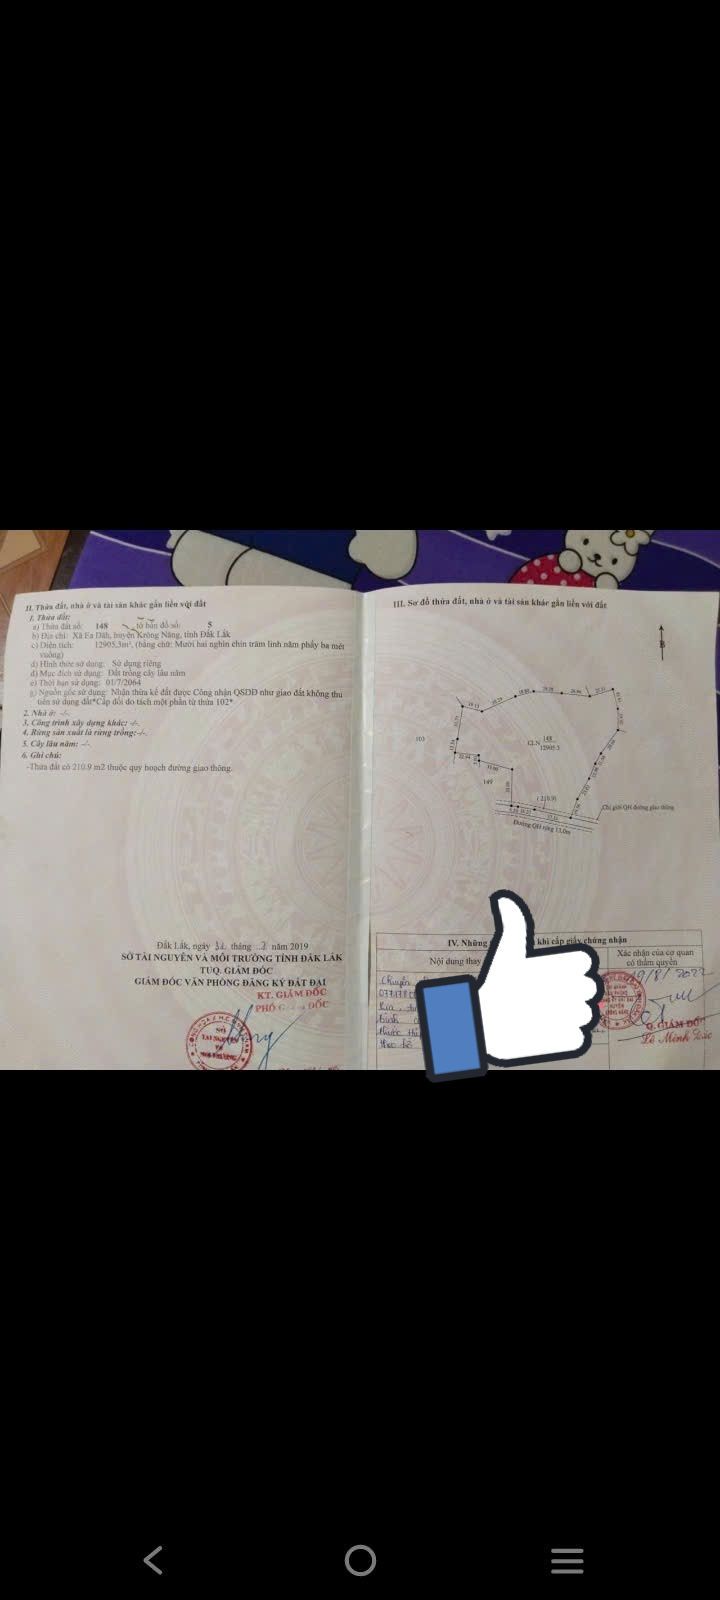 II. Thửa đất, nhà ở và tài sản khác gắn liền với đất
1. Thửa đất:
a) Thửa đất số: 148 tờ bản đồ số: 5
b) Địa chỉ: Xã Ea Dăh, huyện Krông Năng, tỉnh Đắk Lắk
c) Diện tích: 12905,3m², (bằng chữ: Mười hai nghìn chín trăm linh năm phẩy ba mét
vuông)
d) Hình thức sử dụng: Sử dụng riêng
đ) Mục đích sử dụng: Đất trồng cây lâu năm
e) Thời hạn sử dụng: 01/7/2064
g) Nguồn gốc sử dụng: Nhận thừa kế đất được Công nhận QSDĐ như giao đất không thu
tiền sử dụng đất*Cấp đổi do tách một phần từ thửa 102*
2. Nhà ở: -/-.
3. Công trình xây dựng khác: -/-.
4. Rừng sản xuất là rừng trồng:-/-.
5. Cây lâu năm: -/-.
6. Ghi chú:
-Thửa đất có 210.9 m2 thuộc quy hoạch đường giao thông.
Đắk Lắk, ngày tháng năm 2019
SỞ TÀI NGUYÊN VÀ MÔI TRƯỜNG TỈNH ĐẮK LẮK
TUQ. GIÁM ĐỐC
GIÁM ĐỐC VĂN PHÒNG ĐĂNG KÝ ĐẤT ĐAI
KT. GIÁM ĐỐC
PHÓ GIÁM ĐỐC
SỞ
TÀI NGUYÊN
VÀ
MÔI TRƯỜNG
III. Sơ đồ thửa đất, nhà ở và tài sản khác gắn liền với đất
B
103
CLN 148
12905.3
149
(210.9)
Chỉ giới QH đường giao thông
Đường QH rộng 13,0m
IV. Những khi cấp giấy chứng nhận
Nội dung thay
Xác nhận của cơ quan
có thẩm quyền
Chuyển
19/8/2022
theo
Q. GIÁM ĐỐC
Lê Minh